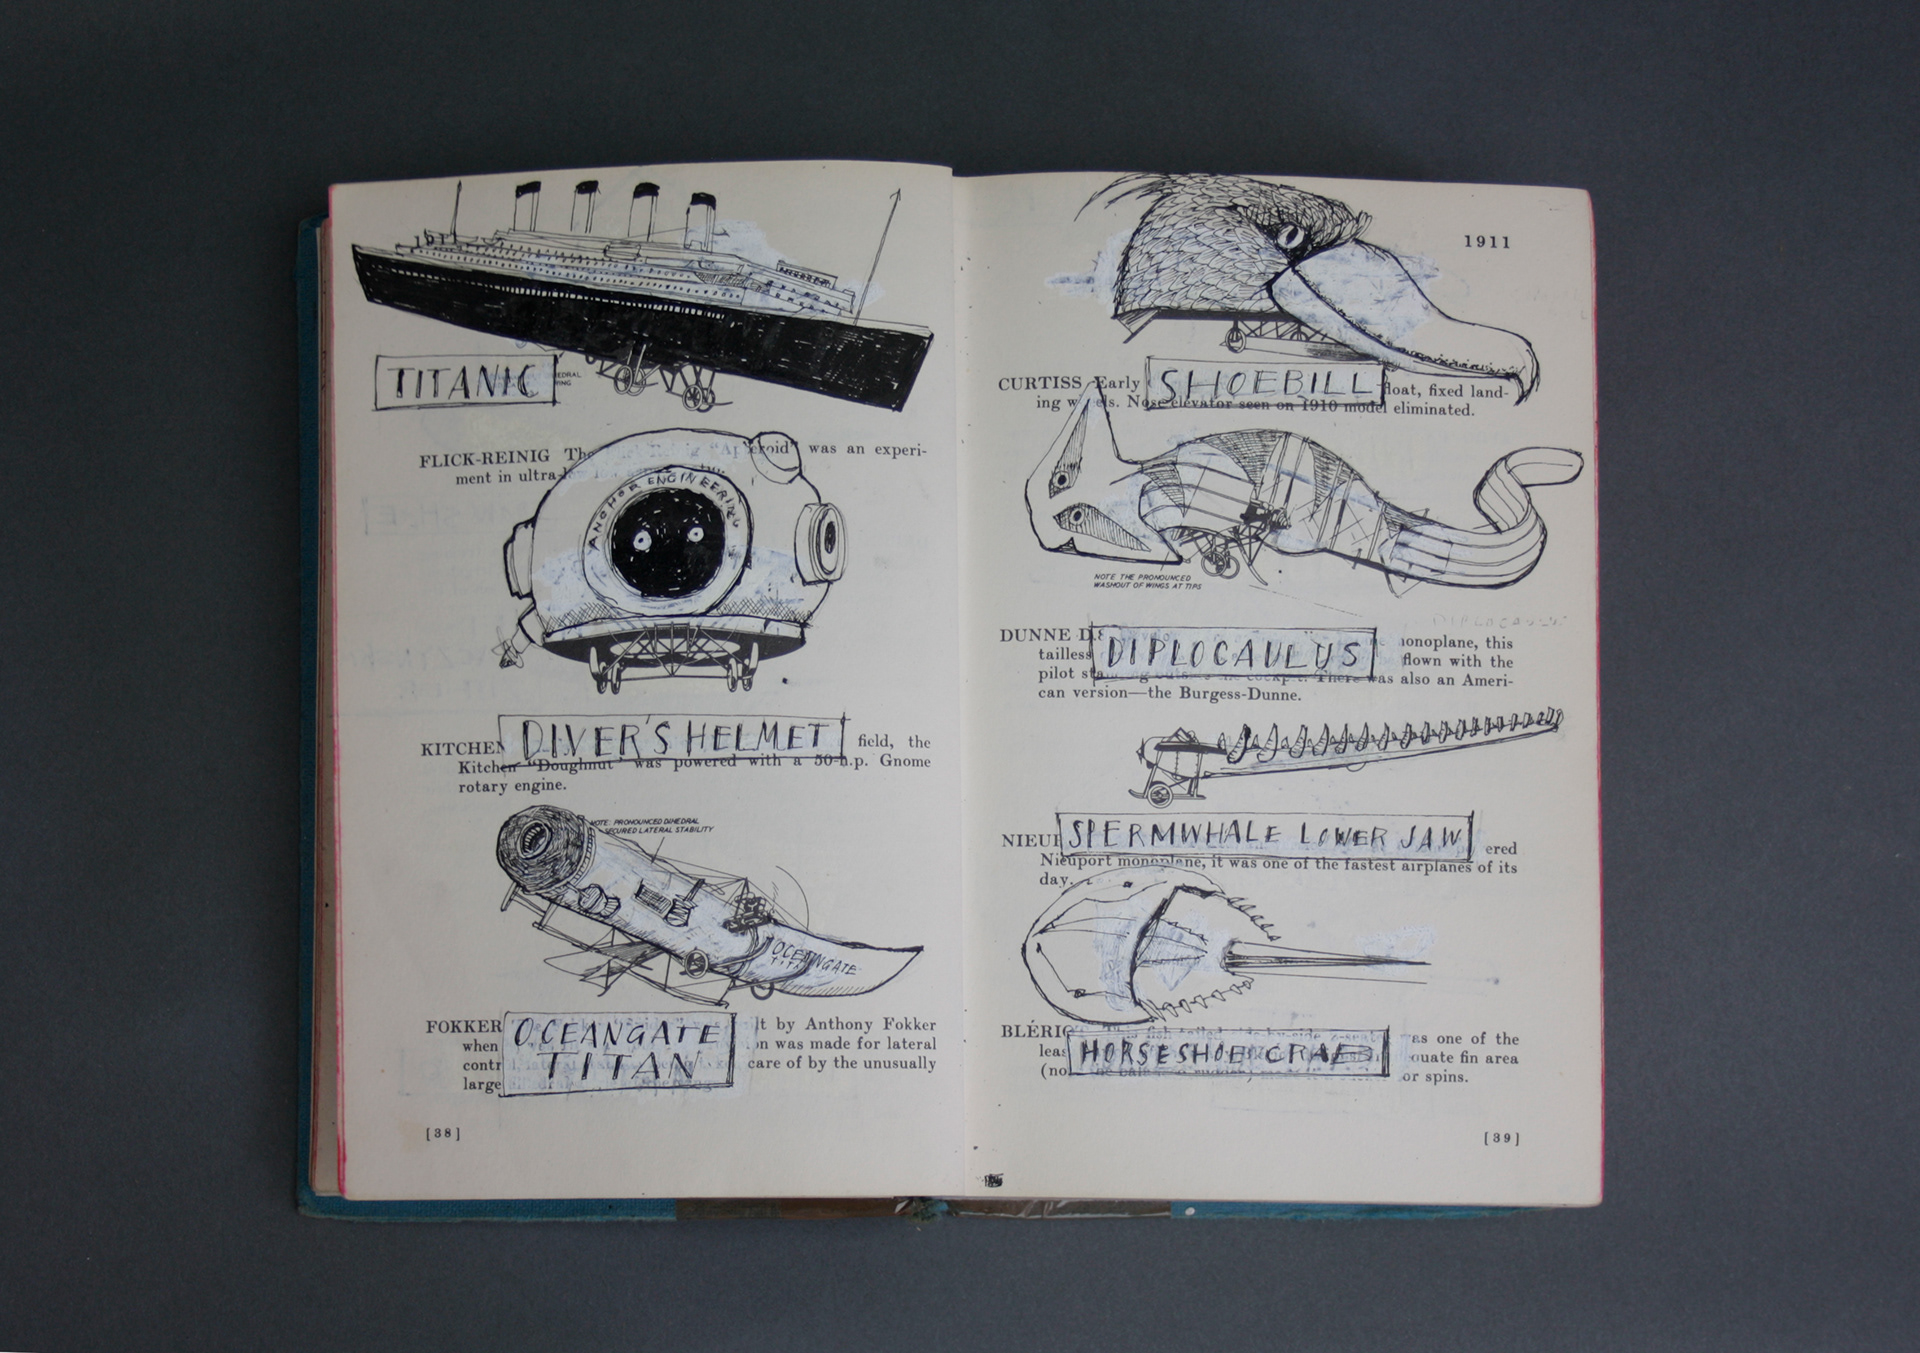 TITANIC
FLICK-REINIG The "Apteroid" was an experi-
ment in ultra-
ANCHOR ENGINEERING
DIVER'S HELMET
KITCHEN field, the
Kitchen "Doughnut" was powered with a 50-h.p. Gnome
rotary engine.
NOTE: PRONOUNCED DIHEDRAL
SECURED LATERAL STABILITY
OCEANGATE
TITAN
OCEANGATE
TITAN
FOKKER by Anthony Fokker
when was made for lateral
care of by the unusually
large
[38]
1911
SHOEBILL
CURTISS Early float, fixed land-
ing wheels. Nose elevator seen on 1910 model eliminated.
NOTE THE PRONOUNCED
WASHOUT OF WINGS AT TIPS
DIPLOCAULUS
DIPLOCAULUS
DUNNE D.8 monoplane, this
tailless flown with the
pilot standing outside the cockpit. There was also an Ameri-
can version—the Burgess-Dunne.
SPERMWHALE LOWER JAW
ered
Nieuport monoplane, it was one of the fastest airplanes of its
day.
HORSESHOE CRAB
was one of the
fin area
or spins.
[39]